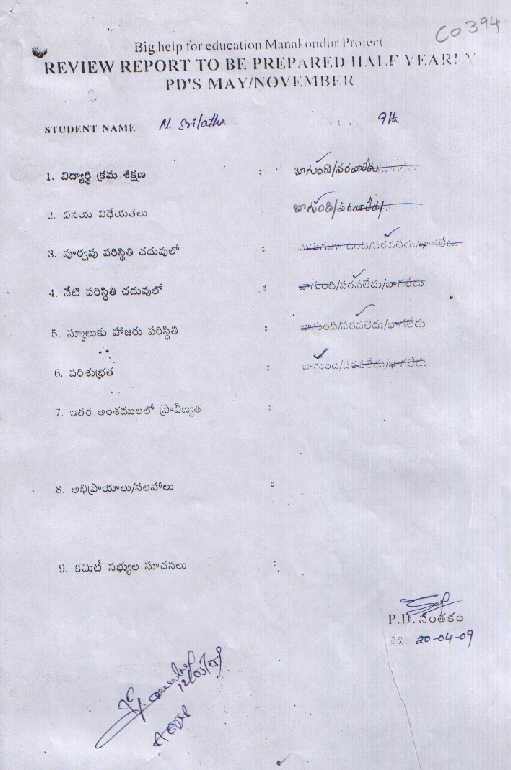 CO394
Big help for education Manakondur Project
REVIEW REPORT TO BE PREPARED HALF YEARLY
PD'S MAY/NOVEMBER
STUDENT NAME N. Srilatha 9th
1. విద్యార్థి క్రమ శిక్షణ : బాగుంది/పరవాలేదు
2. వినయ విధేయతలు బాగుంది/పరవాలేదు
3. పూర్వపు పరిస్థితి చదువులో :
4. నేటి పరిస్థితి చదువులో : బాగుంది/పరవలేదు/బాగలేదు
5. స్కూలుకు హాజరు పరిస్థితి : బాగుంది/పరవలేదు/బాగలేదు
6. పరిశుభ్రత : బాగుంది/పరవలేదు/బాగలేదు
7. ఇతర అంశములలో ప్రావీణ్యత :
8. అభిప్రాయాలు/సలహాలు :
9. కమిటీ సభ్యుల సూచనలు :
P.D. సంతకం
20-04-09